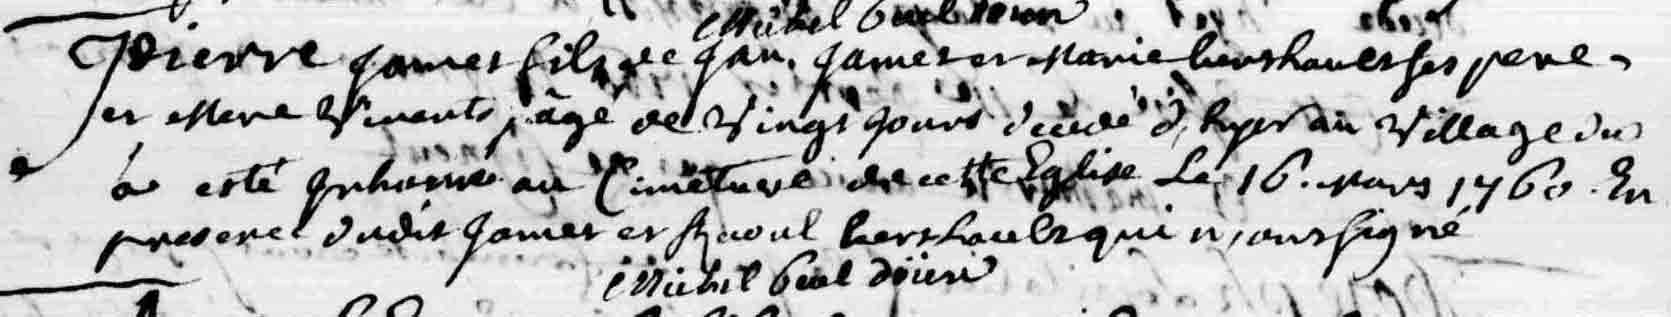 Michel
Pierre James fils de Jan. James et Marie hershault ses pere
et Mere Vivants, âgé de Vingt jours decedé d'hyer au Village du
a esté Inhumé au Cimetiere de cette Eglise Le 16. Mars 1760. En
presence dudit James et Raoul hershault qui n'ont signé
Michel